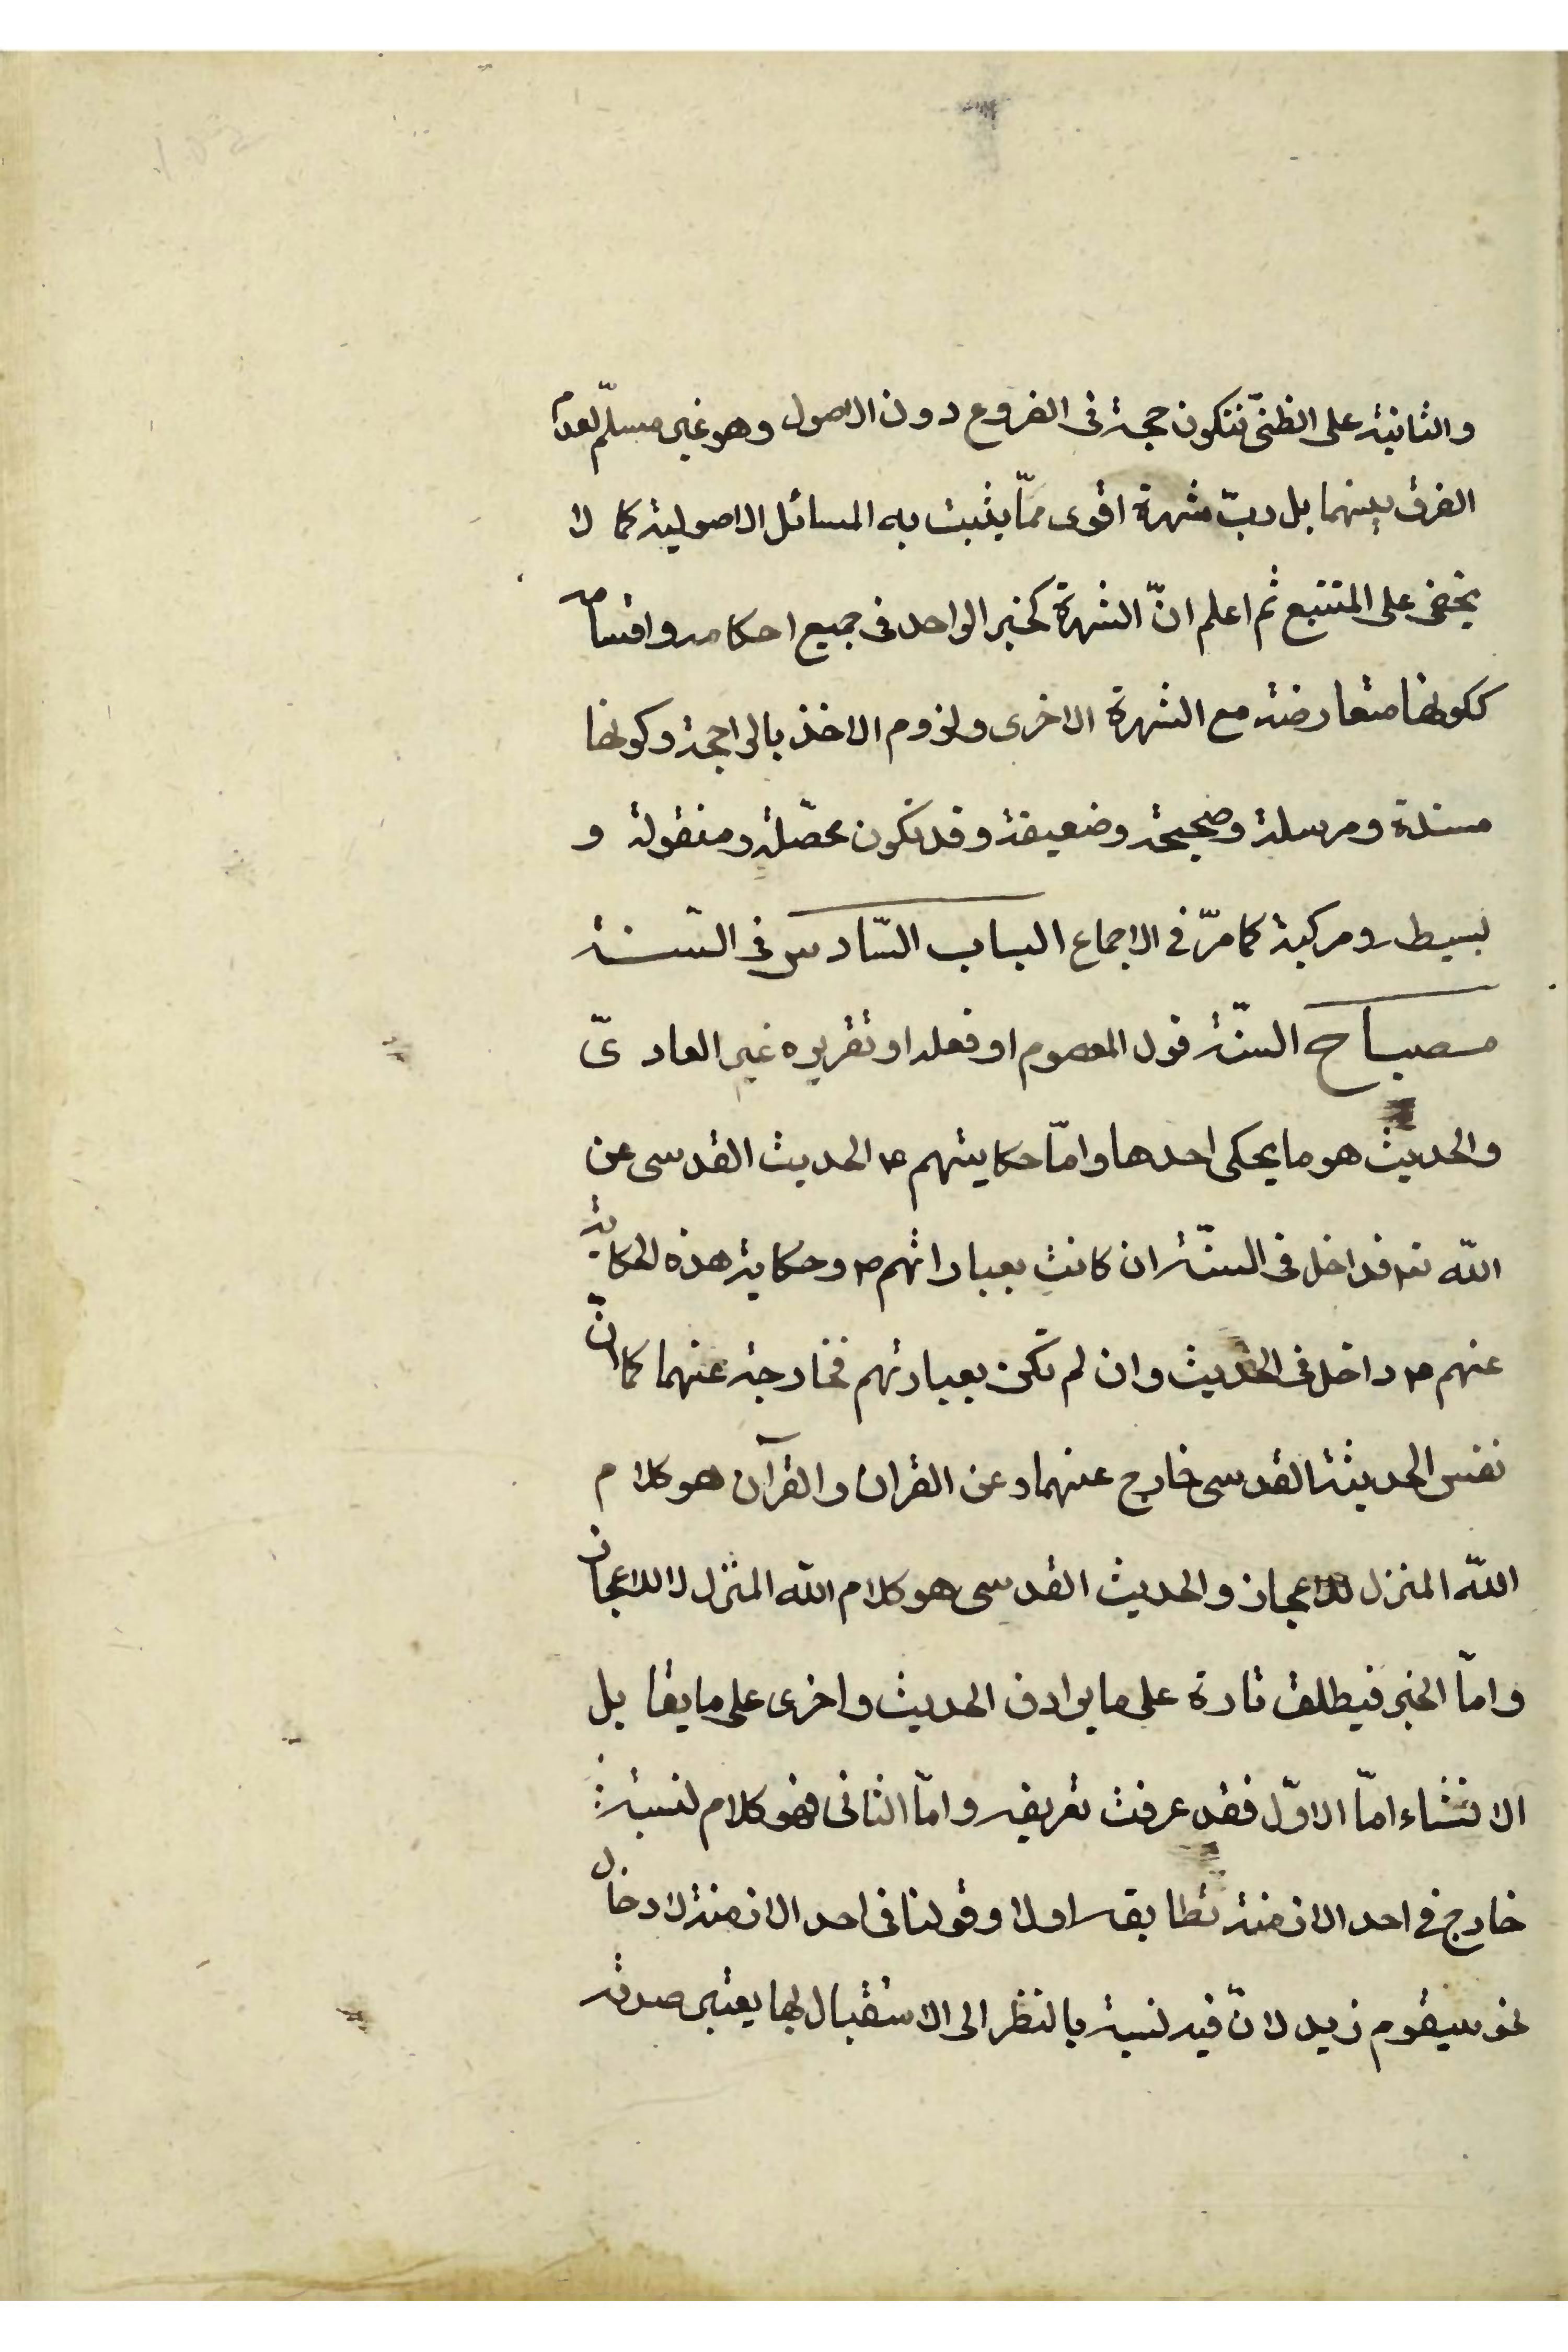 والثانية على الظنّ فتكون حجة فى الفروع دون الاصول وهو غير مسلّم لعدم
الفرق بينهما بل ربّ شهرة اقوى ممّا يثبت به المسائل الاصولية كما لا
يخفى على المتتبع ثم اعلم انّ الشهرة كخبر الواحد فى جميع احكامه واقسامه
ككونها متعارضة مع الشهرة الاخرى ولزوم الاخذ بالراجحة وكونها
مسندة ومرسلة وصحيحة وضعيفة وقد تكون محصّلة ومنقولة و
بسيطه ومركبة كما مرّ فى الاجماع الباب السّادس فى السّنة
مصباح السنّة قول المعصوم او فعله او تقريره غير العادىّ
والحديث هو ما يحكى احدها وامّا حكايتهم ع الحديث القدسى عن
اللّه تعم فداخل فى السنّة ان كانت بعباراتهم ع وحكاية هذه الحكاية
عنهم ع داخل فى الحديث وان لم تكن بعبارتهم فخارجة عنهما كما انّ
نفس الحديثة القدسى خارج عنهما وعن القران والقرآن هو كلام
اللّه المنزل للاعجاز والحديث القدسى هو كلام اللّه المنزل لا للاعجاز
وامّا الخبر فيطلق تارة على ما يرادف الحديث واخرى على ما يقابل
الانشاء امّا الاوّل فقد عرفت تعريفه وامّا الثانى فهو كلام لنسبة
خارج فى احد الازمنة تطابقه اولا وقولنا فى احد الازمنة لادخال
نحو سيقوم زيد لانّ فيه نسبة بالنظر الى الاستقبال بها يعتبر صدقه